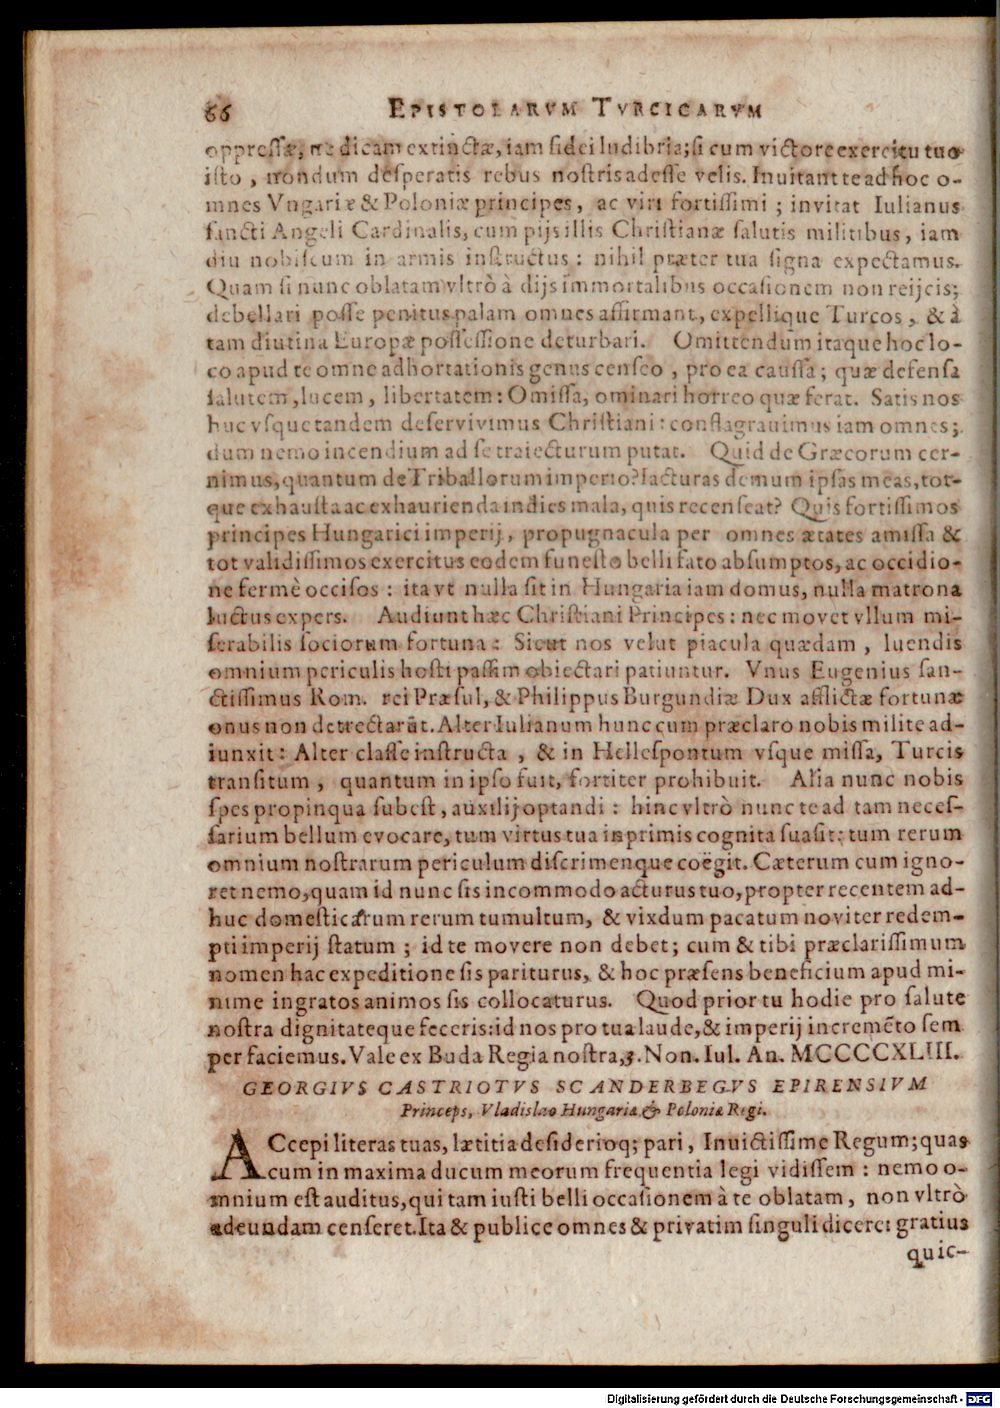 66 EPISTOLARVM TVRCICARVM
oppreſſæ, ne dicam extinctæ, iam fidei ludibria; ſi cum victore exercitu tuo
iſto, nondum deſperatis rebus noſtris adeſſe velis. Inuitant te ad hoc o-
mnes Vngariæ & Poloniæ principes, ac viri fortiſſimi; invitat Iulianus
ſancti Angeli Cardinalis, cum pijs illis Chriſtianæ ſalutis militibus, iam
diu nobiſcum in armis inſtructus: nihil præter tua ſigna expectamus.
Quam ſi nunc oblatam vltrò à dijs immortalibus occaſionem non reijcis;
debellari poſſe penitus palam omnes affirmant, expellique Turcos, & à
tam diutina Europæ poſſeſſione deturbari. Omittendum itaque hoc lo-
co apud te omne adhortationis genus cenſeo, pro ea cauſſa; quæ defenſa
ſalutem, lucem, libertatem: Omiſſa, ominari horreo quæ ferat. Satis nos
huc vſque tandem deſervivimus Chriſtiani: conflagrauimus iam omnes;
dum nemo incendium ad ſe traiecturum putat. Quid de Græcorum cer-
nimus, quantum de Triballorum imperio? Iacturas demum ipſas meas, tot-
que exhauſta ac exhaurienda indies mala, quis recenſeat? Quis fortiſſimos
principes Hungarici imperij, propugnacula per omnes ætates amiſſa &
tot validiſſimos exercitus eodem funeſto belli fato abſumptos, ac occidio-
ne fermè occiſos: ita vt nulla ſit in Hungaria iam domus, nulla matrona
luctus expers. Audiunt hæc Chriſtiani Principes: nec movet vllum mi-
ſerabilis ſociorum fortuna: Sicut nos velut piacula quædam, luendis
omnium periculis hoſti paſſim obiectari patiuntur. Vnus Eugenius ſan-
ctiſſimus Rom. rei Præſul, & Philippus Burgundiæ Dux afflictæ fortunæ
onus non detrectarūt. Alter Iulianum hunc cum præclaro nobis milite ad-
iunxit: Alter claſſe inſtructa, & in Helleſpontum vſque miſſa, Turcis
tranſitum, quantum in ipſo fuit, fortiter prohibuit. Alia nunc nobis
ſpes propinqua ſubeſt, auxilij optandi: hinc vltrò nunc te ad tam neceſ-
ſarium bellum evocare, tum virtus tua inprimis cognita ſuaſit: tum rerum
omnium noſtrarum periculum diſcrimenque coëgit. Cæterum cum igno-
ret nemo, quam id nunc ſis incommodo acturus tuo, propter recentem ad-
huc domeſticarum rerum tumultum, & vixdum pacatum noviter redem-
pti imperij ſtatum; id te movere non debet; cum & tibi præclariſſimum
nomen hac expeditione ſis pariturus, & hoc præſens beneficium apud mi-
nime ingratos animos ſis collocaturus. Quod prior tu hodie pro ſalute
noſtra dignitateque feceris: id nos pro tua laude, & imperij incremēto ſem
per faciemus. Vale ex Buda Regia noſtra, 3. Non. Iul. An. MCCCCXLIII.
GEORGIVS CASTRIOTVS SCANDERBEGVS EPIRENSIVM
Princeps, Vladislao Hungariæ & Poloniæ Regi.
ACcepi literas tuas, lætitia deſiderioq; pari, Inuictiſſime Regum; quas
cum in maxima ducum meorum frequentia legi vidiſſem: nemo o-
mnium eſt auditus, qui tam iuſti belli occaſionem à te oblatam, non vltrò
adeundam cenſeret. Ita & publice omnes & privatim ſinguli dicere: gratius
quic-
Digitalisierung gefördert durch die Deutsche Forschungsgemeinschaft - DFG